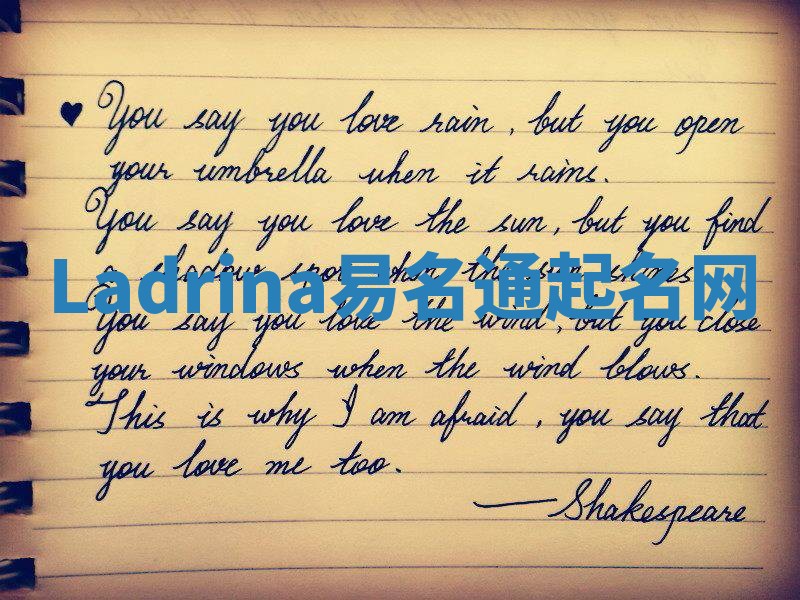 ♥ You say you love rain, but you open
your umbrella when it rains.
You say you love the sun, but you find
a shadow spot when the sun shines
Ladrina易名通起名网
You say you love the wind, but you close
your windows when the wind blows.
This is why I am afraid, you say that
you love me too.
— Shakespeare